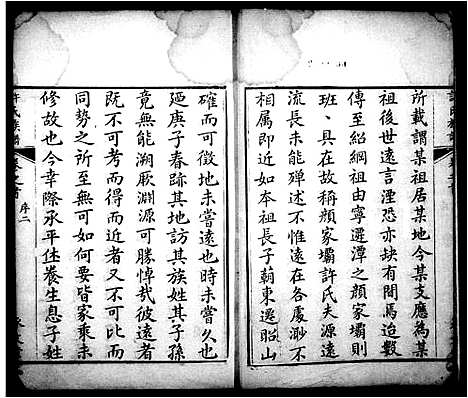 所載謂某祖居某地今某支應為某
祖後世遠言湮恐亦缺有間焉迨數
傳至紹綱祖由寧遷潭之顏家壩則
班班具在故稱顏家壩許氏夫源遠
流長未能殫述不惟遠在各處渺不
相屬即近如本祖長子萠東遷昭山
確而可徵地未嘗遠也時未嘗久也
廼庚子春跡其地訪其族姓其子孫
竟無能溯厥淵源可勝悼哉彼遠者
既不可考而得而近者又不可比而
同勢之所至無可如何要皆家乘未
修故也今幸際承平休養生息子姓
許氏族譜
卷之首
序二